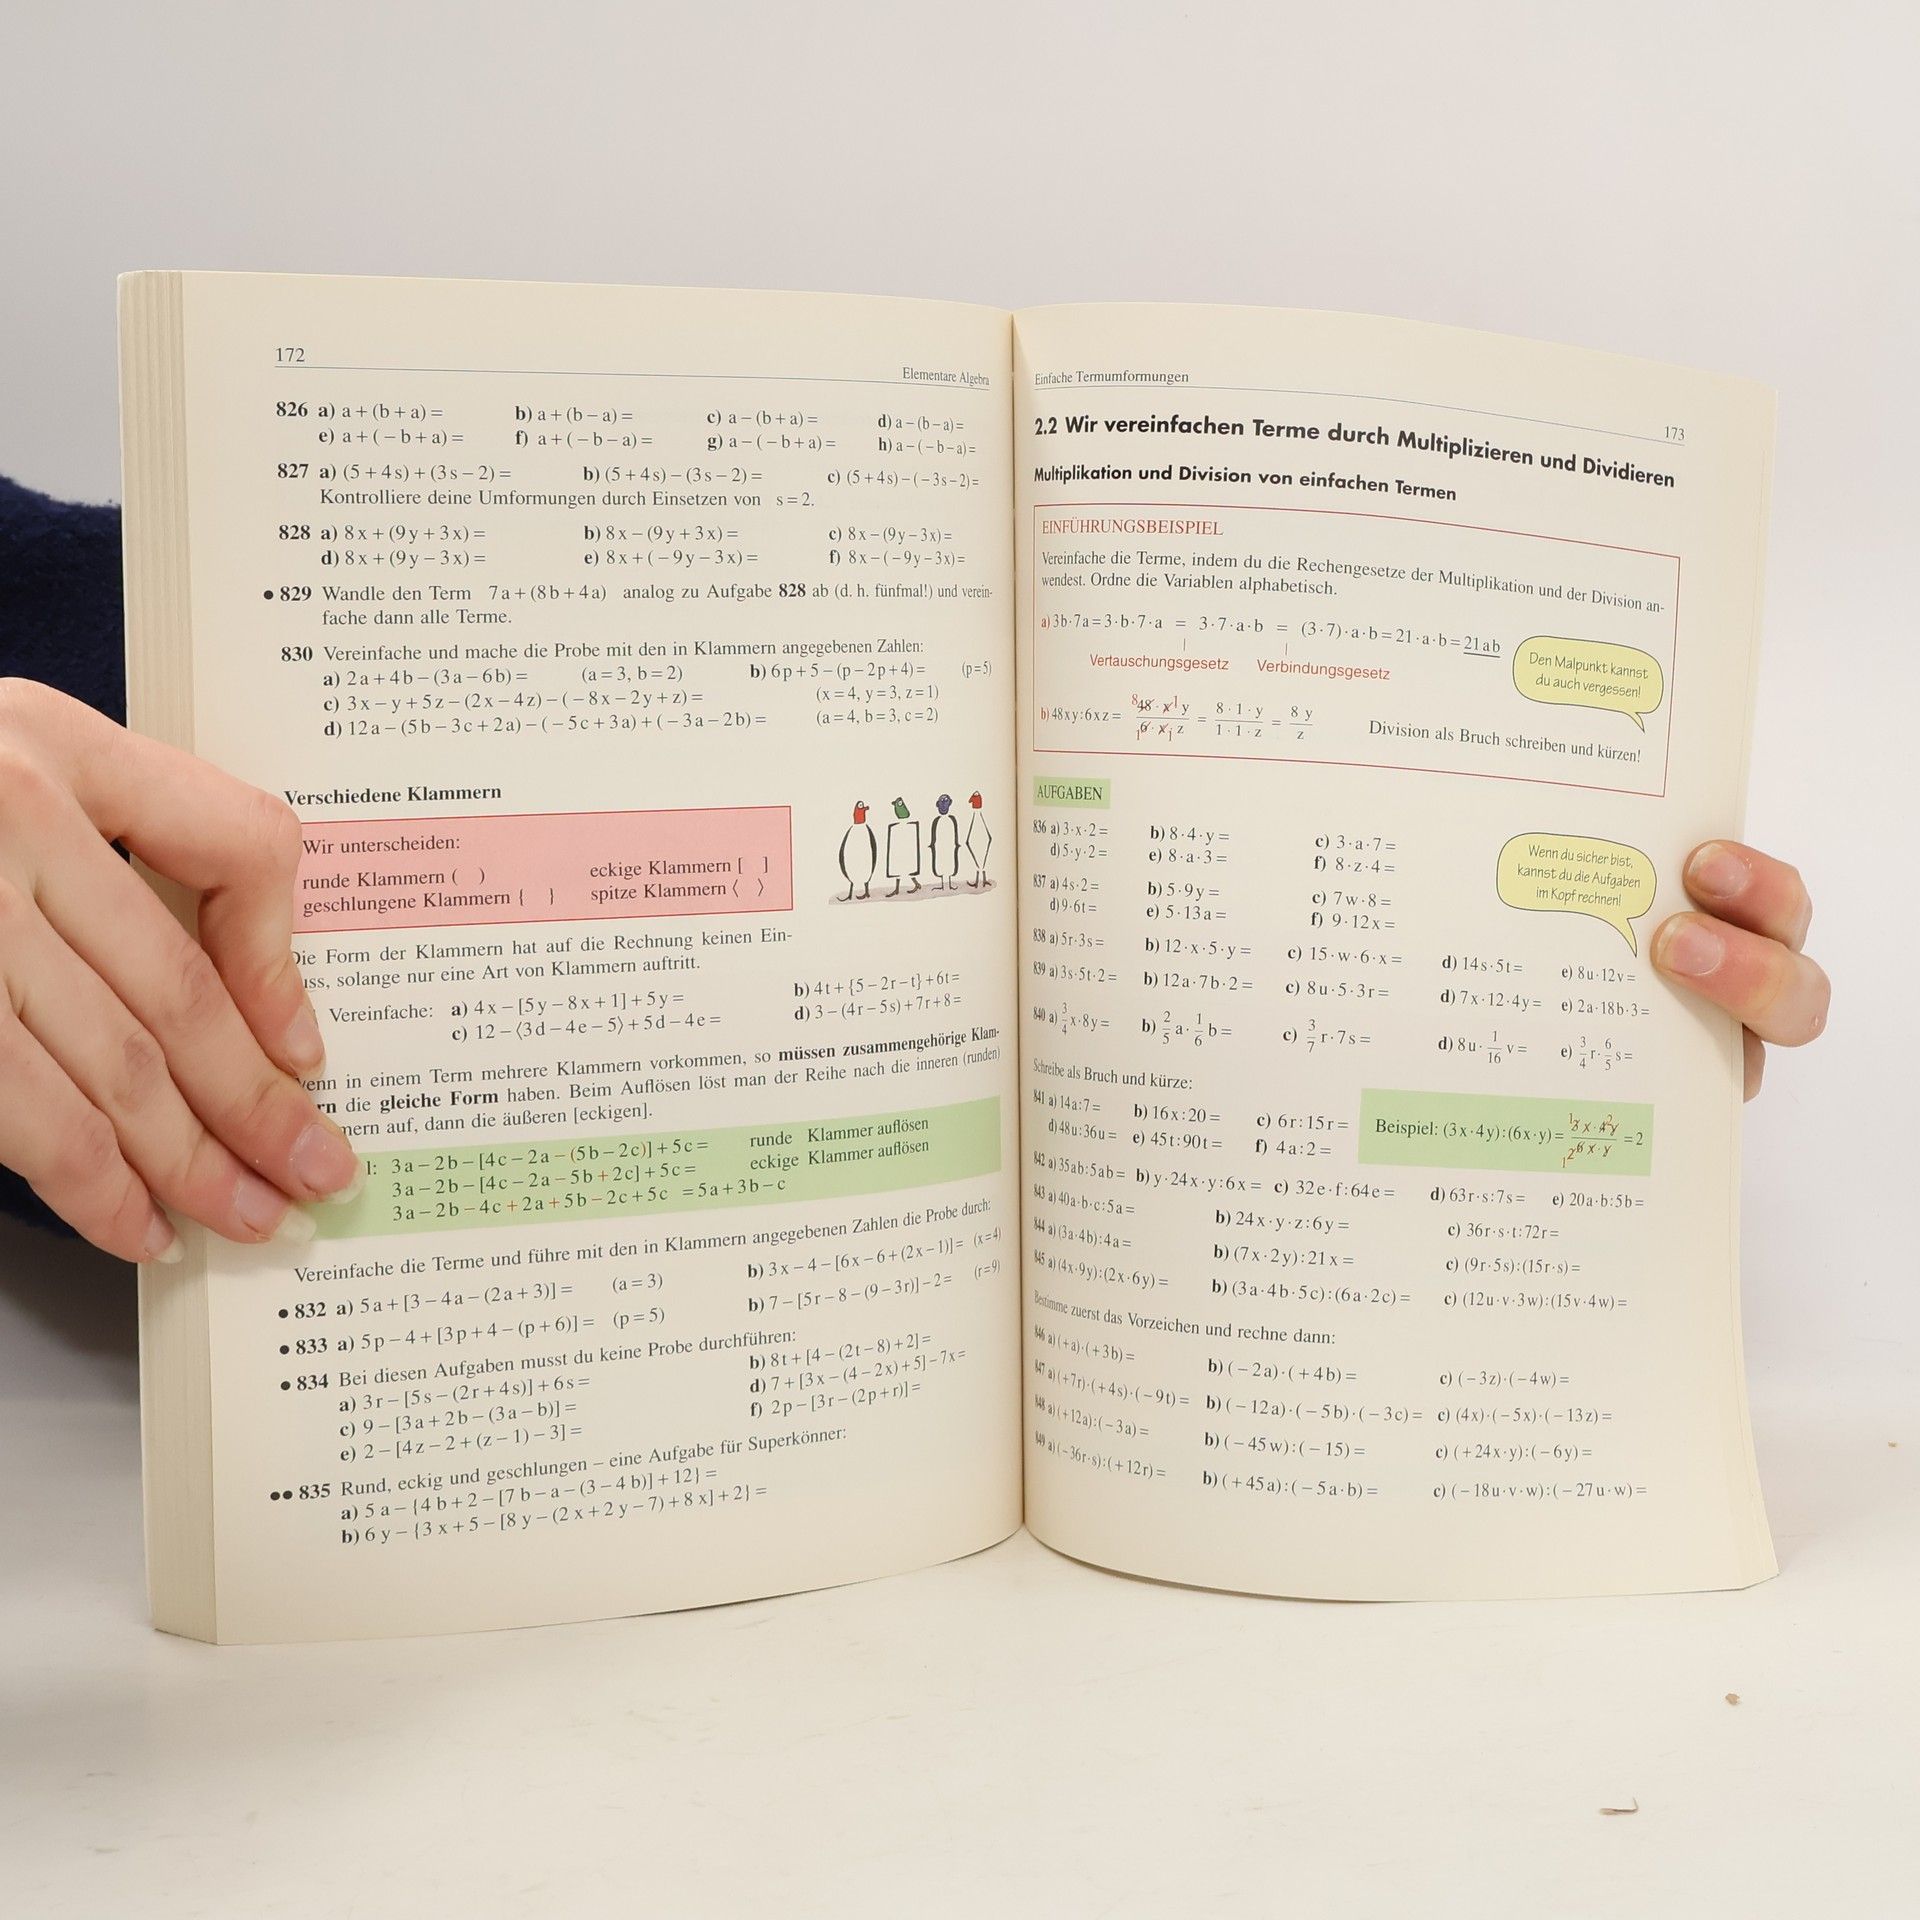 172
Elementare Algebra
826 a) a + (b + a) = b) a + (b − a) = c) a − (b + a) = d) a − (b − a) =
e) a + (− b + a) = f) a + (− b − a) = g) a − (− b + a) = h) a − (− b − a) =
827 a) (5 + 4s) + (3s − 2) = b) (5 + 4s) − (3s − 2) = c) (5 + 4s) − (− 3s − 2) =
Kontrolliere deine Umformungen durch Einsetzen von s = 2.
828 a) 8x + (9y + 3x) = b) 8x − (9y + 3x) = c) 8x − (9y − 3x) =
d) 8x + (9y − 3x) = e) 8x + (− 9y − 3x) = f) 8x − (− 9y − 3x) =
● 829 Wandle den Term 7a + (8b + 4a) analog zu Aufgabe 828 ab (d. h. fünfmal!) und verein-
fache dann alle Terme.
830 Vereinfache und mache die Probe mit den in Klammern angegebenen Zahlen:
a) 2a + 4b − (3a − 6b) = (a = 3, b = 2) b) 6p + 5 − (p − 2p + 4) = (p = 5)
c) 3x − y + 5z − (2x − 4z) − (− 8x − 2y + z) = (x = 4, y = 3, z = 1)
d) 12a − (5b − 3c + 2a) − (− 5c + 3a) + (− 3a − 2b) = (a = 4, b = 3, c = 2)
Verschiedene Klammern
Wir unterscheiden:
runde Klammern ( ) eckige Klammern [ ]
geschlungene Klammern { } spitze Klammern ⟨ ⟩
Die Form der Klammern hat auf die Rechnung keinen Ein-
uss, solange nur eine Art von Klammern auftritt.
Vereinfache: a) 4x − [5y − 8x + 1] + 5y = b) 4t + {5 − 2r − t} + 6t =
c) 12 − ⟨3d − 4e − 5⟩ + 5d − 4e = d) 3 − (4r − 5s) + 7r + 8 =
enn in einem Term mehrere Klammern vorkommen, so müssen zusammengehörige Klam-
rn die gleiche Form haben. Beim Auflösen löst man der Reihe nach die inneren (runden)
mern auf, dann die äußeren [eckigen].
l: 3a − 2b − [4c − 2a − (5b − 2c)] + 5c = runde Klammer auflösen
3a − 2b − [4c − 2a − 5b + 2c] + 5c = eckige Klammer auflösen
3a − 2b − 4c + 2a + 5b − 2c + 5c = 5a + 3b − c
Vereinfache die Terme und führe mit den in Klammern angegebenen Zahlen die Probe durch:
● 832 a) 5a + [3 − 4a − (2a + 3)] = (a = 3) b) 3x − 4 − [6x − 6 + (2x − 1)] = (x = 4)
● 833 a) 5p − 4 + [3p + 4 − (p + 6)] = (p = 5) b) 7 − [5r − 8 − (9 − 3r)] − 2 = (r = 9)
● 834 Bei diesen Aufgaben musst du keine Probe durchführen:
a) 3r − [5s − (2r + 4s)] + 6s = b) 8t + [4 − (2t − 8) + 2] =
c) 9 − [3a + 2b − (3a − b)] = d) 7 + [3x − (4 − 2x) + 5] − 7x =
e) 2 − [4z − 2 + (z − 1) − 3] = f) 2p − [3r − (2p + r)] =
●● 835 Rund, eckig und geschlungen – eine Aufgabe für Superkönner:
a) 5a − {4b + 2 − [7b − a − (3 − 4b)] + 12} =
b) 6y − {3x + 5 − [8y − (2x + 2y − 7) + 8x] + 2} =
Einfache Termumformungen
173
2.2 Wir vereinfachen Terme durch Multiplizieren und Dividieren
Multiplikation und Division von einfachen Termen
EINFÜHRUNGSBEISPIEL
Vereinfache die Terme, indem du die Rechengesetze der Multiplikation und der Division an-
wendest. Ordne die Variablen alphabetisch.
a) 3b · 7a = 3 · b · 7 · a = 3 · 7 · a · b = (3 · 7) · a · b = 21 · a · b = 21ab
Vertauschungsgesetz Verbindungsgesetz
Den Malpunkt kannst
du auch vergessen!
b) 48xy : 6xz = 8 48 · x 1 y / 1 6 · x 1 z = 8 · 1 · y / 1 · 1 · z = 8 y / z Division als Bruch schreiben und kürzen!
AUFGABEN
836 a) 3 · x · 2 = b) 8 · 4 · y = c) 3 · a · 7 =
d) 5 · y · 2 = e) 8 · a · 3 = f) 8 · z · 4 =
Wenn du sicher bist,
kannst du die Aufgaben
im Kopf rechnen!
837 a) 4s · 2 = b) 5 · 9y = c) 7w · 8 =
d) 9 · 6t = e) 5 · 13a = f) 9 · 12x =
838 a) 5r · 3s = b) 12 · x · 5 · y = c) 15 · w · 6 · x = d) 14s · 5t = e) 8u · 12v =
839 a) 3s · 5t · 2 = b) 12a · 7b · 2 = c) 8u · 5 · 3r = d) 7x · 12 · 4y = e) 2a · 18b · 3 =
840 a) 3/4 x · 8y = b) 2/5 a · 1/6 b = c) 3/7 r · 7s = d) 8u · 1/16 v = e) 3/4 r · 6/5 s =
Schreibe als Bruch und kürze:
841 a) 14a : 7 = b) 16x : 20 = c) 6r : 15r =
d) 48u : 36u = e) 45t : 90t = f) 4a : 2 =
Beispiel: (3x · 4y) : (6x · y) = 1 3 x · 4 2 y / 1 2 6 x · y = 2
842 a) 35ab : 5ab = b) y · 24x · y : 6x = c) 32e · f : 64e = d) 63r · s : 7s = e) 20a · b : 5b =
843 a) 40a · b · c : 5a = b) 24x · y · z : 6y = c) 36r · s · t : 72r =
844 a) (3a · 4b) : 4a = b) (7x · 2y) : 21x = c) (9r · 5s) : (15r · s) =
845 a) (4x · 9y) : (2x · 6y) = b) (3a · 4b · 5c) : (6a · 2c) = c) (12u · v · 3w) : (15v · 4w) =
Bestimme zuerst das Vorzeichen und rechne dann:
846 a) (+a) · (+3b) = b) (− 2a) · (+ 4b) = c) (− 3z) · (− 4w) =
847 a) (+7r) · (+4s) · (− 9t) = b) (− 12a) · (− 5b) · (− 3c) = c) (4x) · (− 5x) · (− 13z) =
848 a) (+12a) : (− 3a) = b) (− 45w) : (− 15) = c) (+ 24x · y) : (− 6y) =
849 a) (− 36r · s) : (+ 12r) = b) (+ 45a) : (− 5a · b) = c) (− 18u · v · w) : (− 27u · w) =